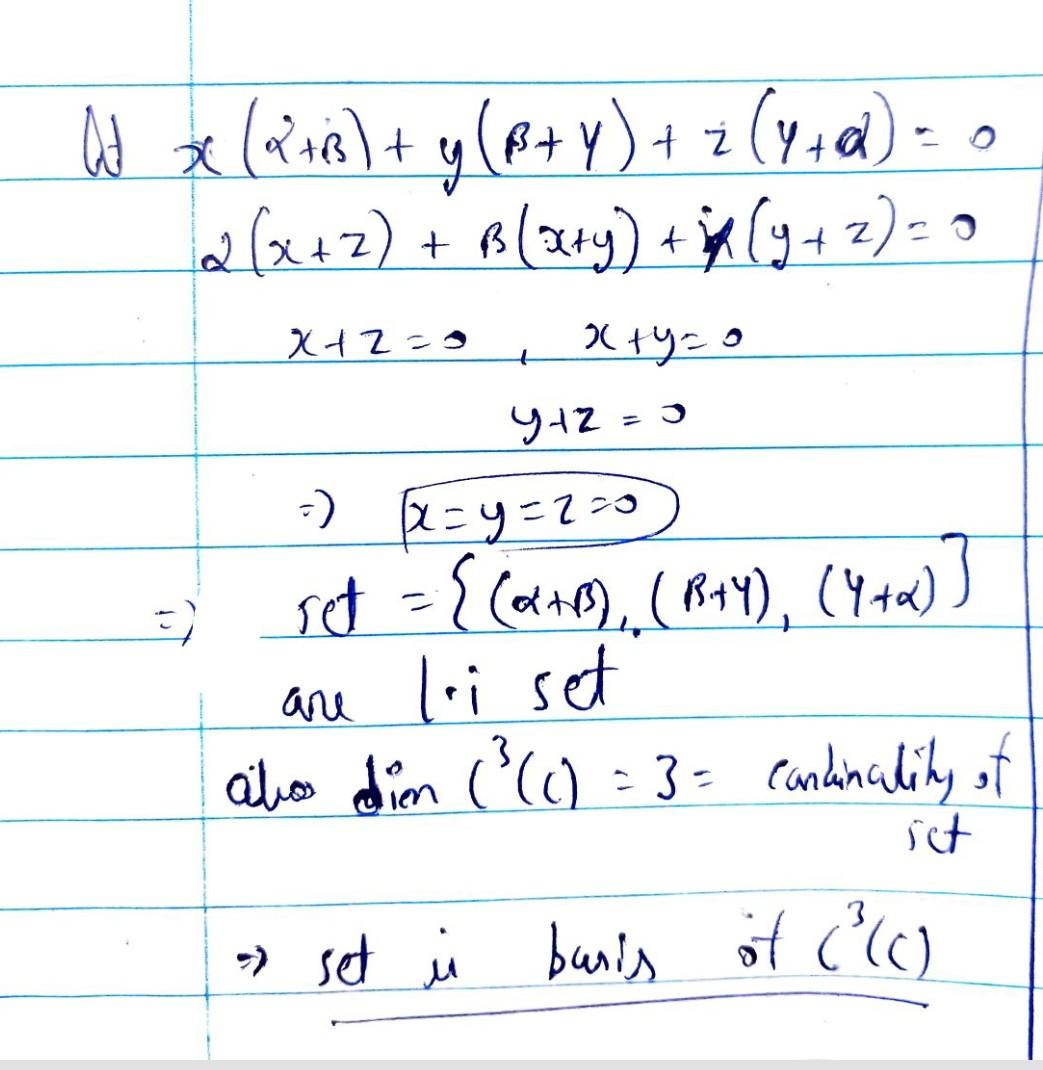 let x(α+β) + y(β+γ) + z(γ+α) = 0
α(x+z) + β(x+y) + γ(y+z) = 0
x+z=0 , x+y=0
y+z=0
⇒) x=y=z=0
⇒) set = {(α+β), (β+γ), (γ+α)}
are l.i set
also dim C³(C) = 3 = cardinality of
set
⇒ set is basis of C³(C)